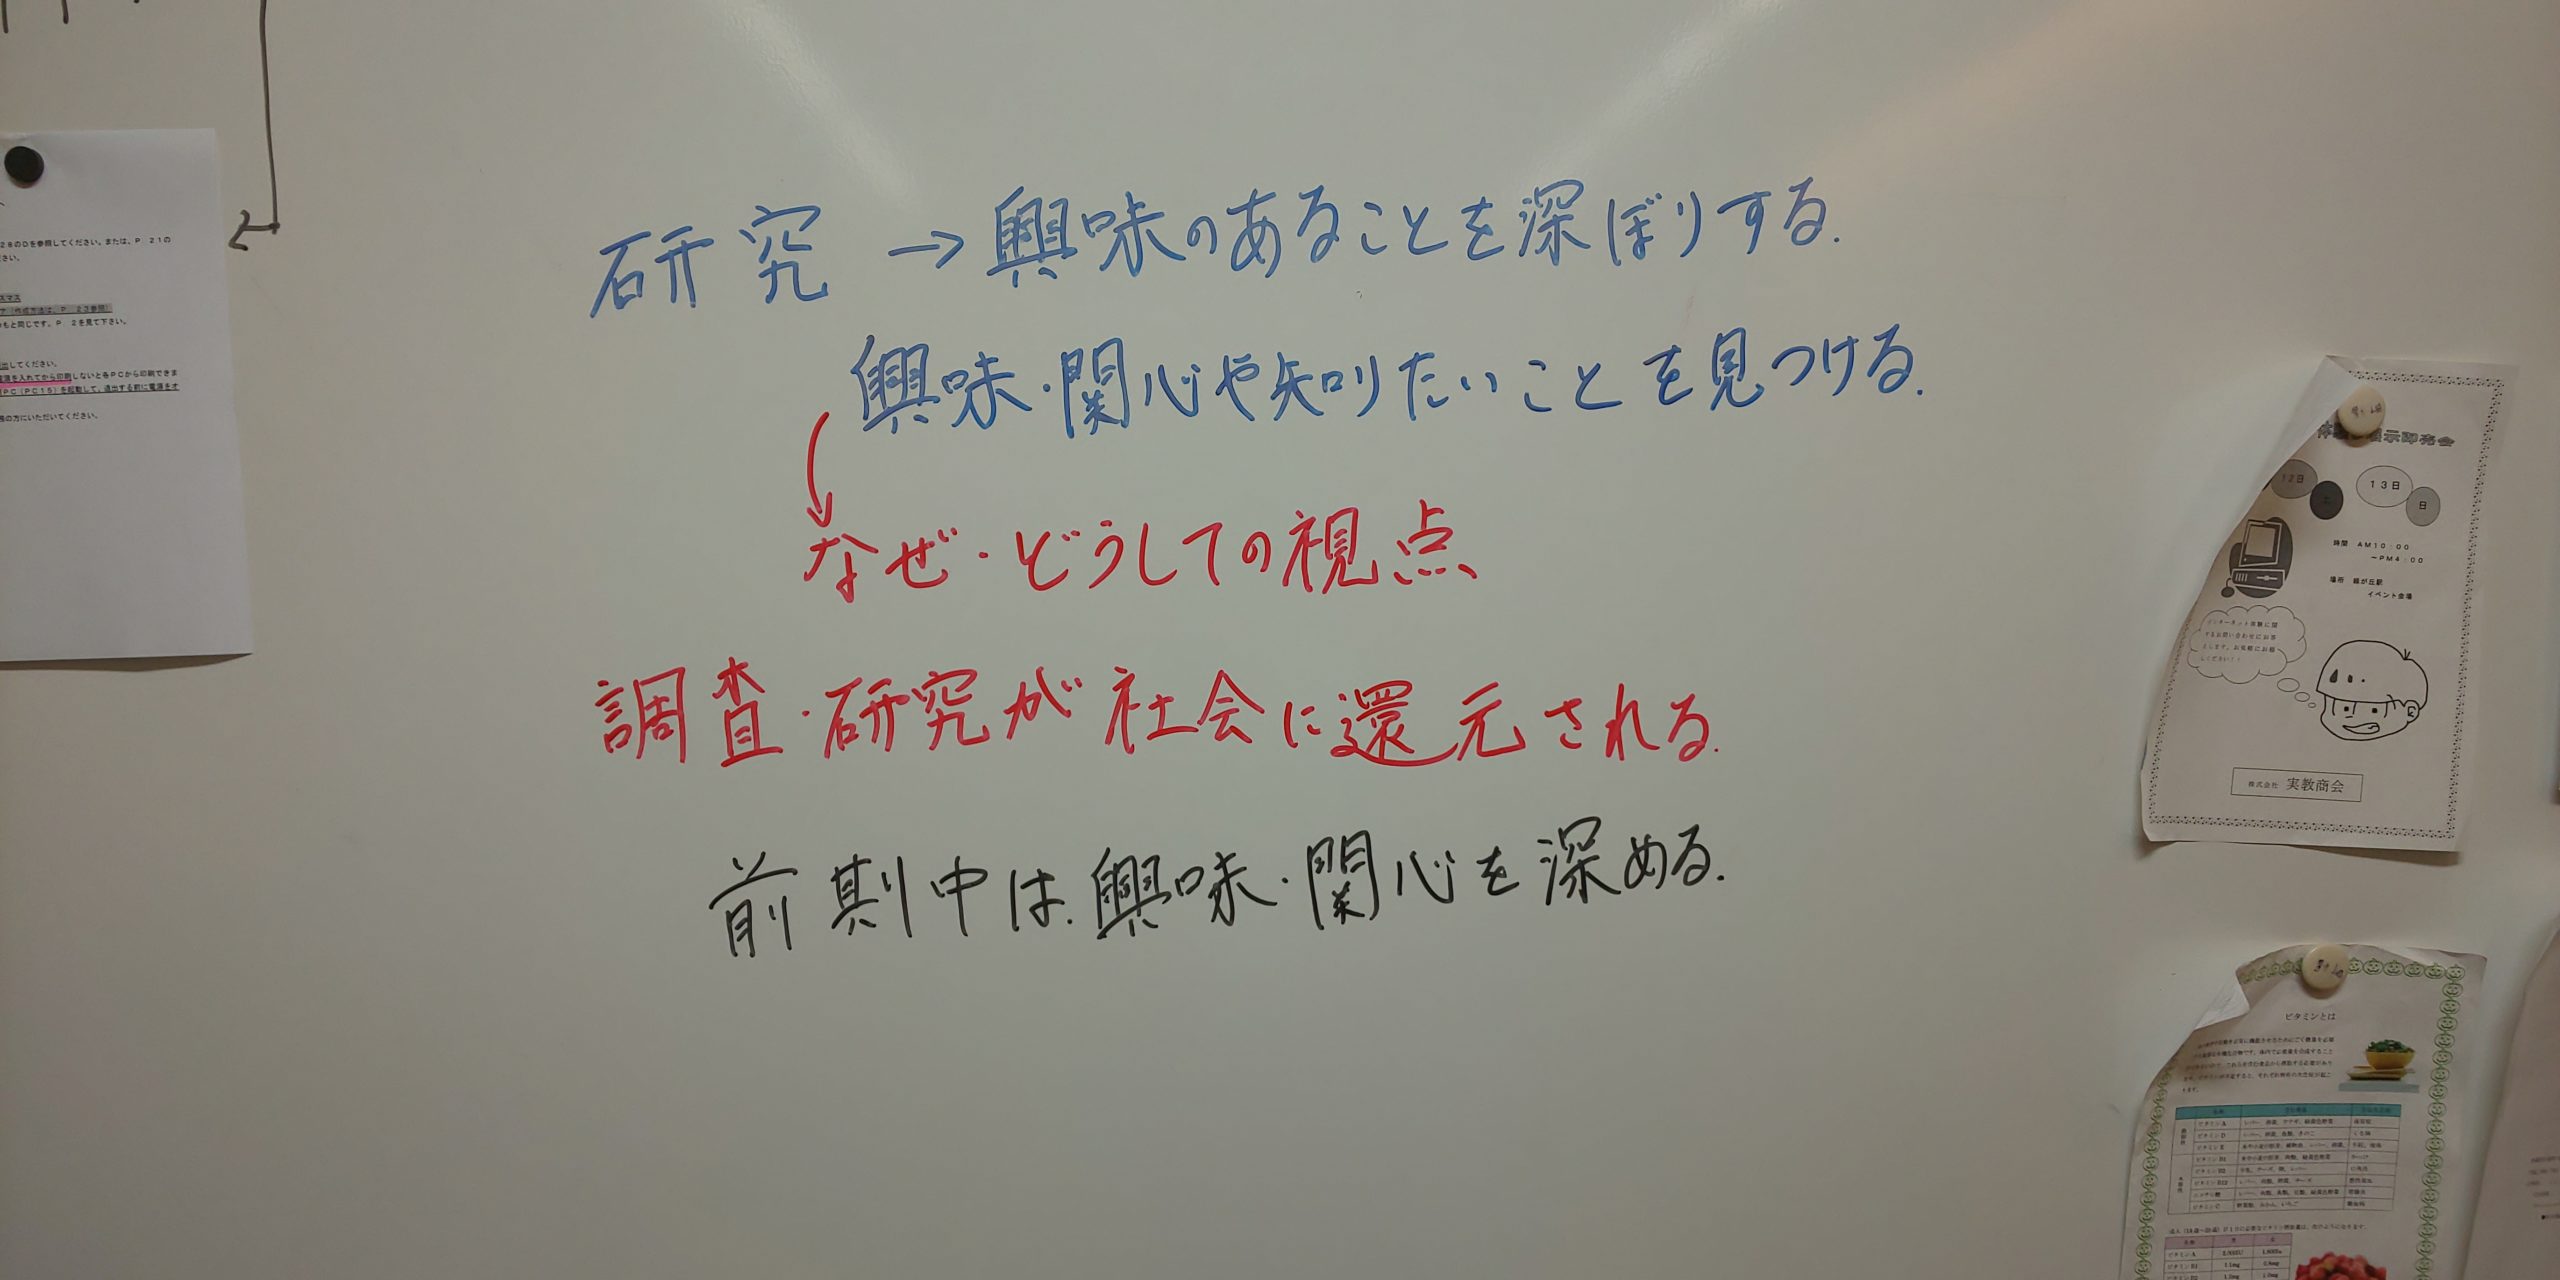 研究→興味のあることを深ぼりする.
興味・関心や知りたいことを見つける.
なぜ・どうしての視点
調査・研究が社会に還元される.
前期中は.興味・関心を深める.
28のDを参照してください。または、P 21の
さい。
スマス
(作成方法は、P 23参照)
もと同じです。P 2を見て下さい。
出してください。
電源を入れてから印刷しないと各PCから印刷できま
PC(PC15)を起動して、退出する前に電源をオ
の方にいただいてください。
示即売会
12日 土 13日 日
時間 AM10:00
~PM4:00
場所 緑が丘駅
イベント会場
インターネット体験に関
するお問い合わせにお答
えします。お気軽にお越
しください!!
株式会社 実教商会
ビタミンとは
ビタミンA
ビタミンD
ビタミンE
ビタミンB1
ビタミンB2
ビタミンB12
ビタミンC